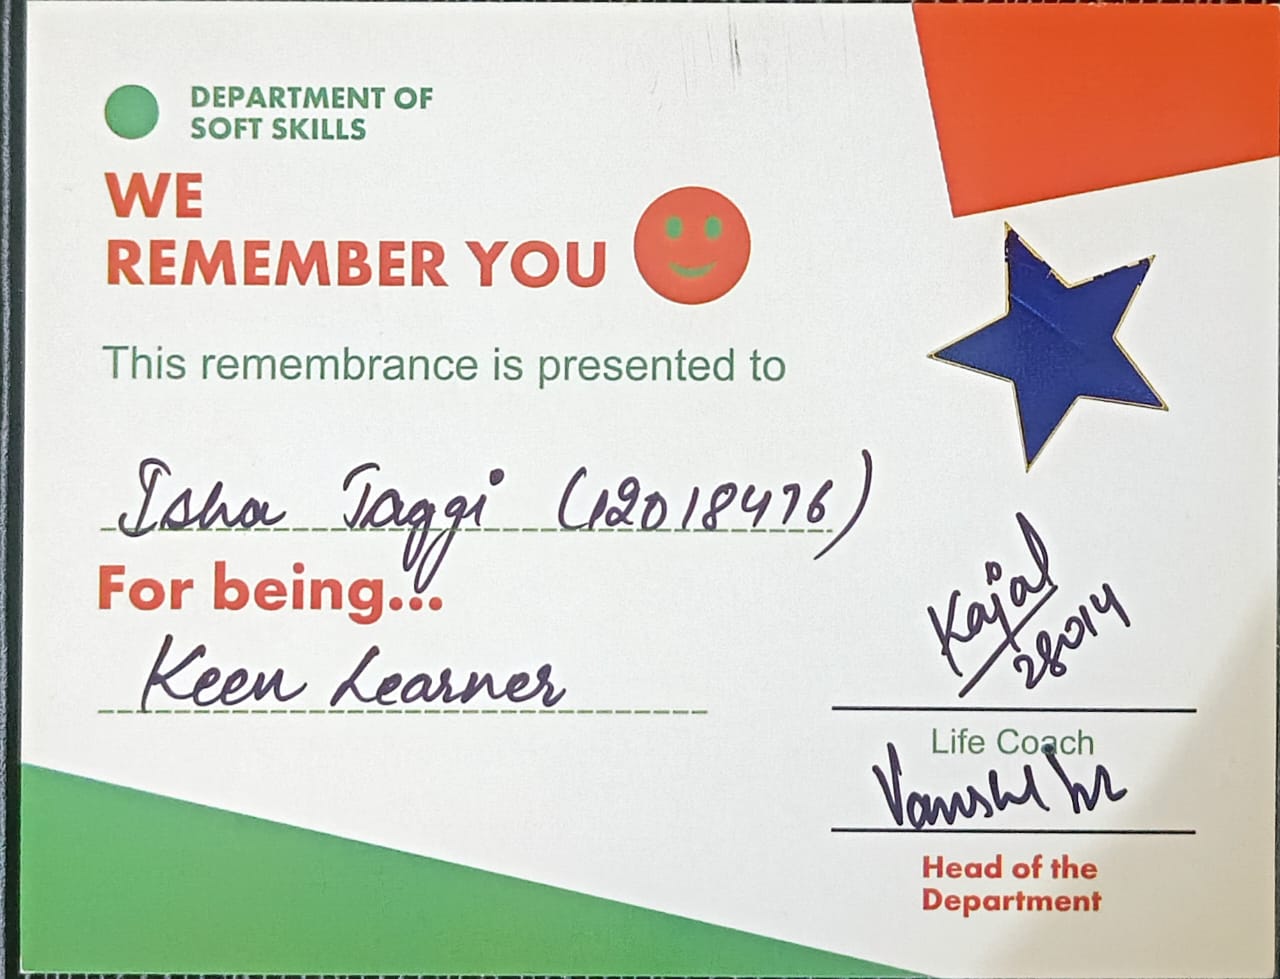 DEPARTMENT OF
SOFT SKILLS
WE
REMEMBER YOU
This remembrance is presented to
Isha Jaggi (12018476)
For being...
Keen Learner
Kajal
28014
Life Coach
Head of the
Department